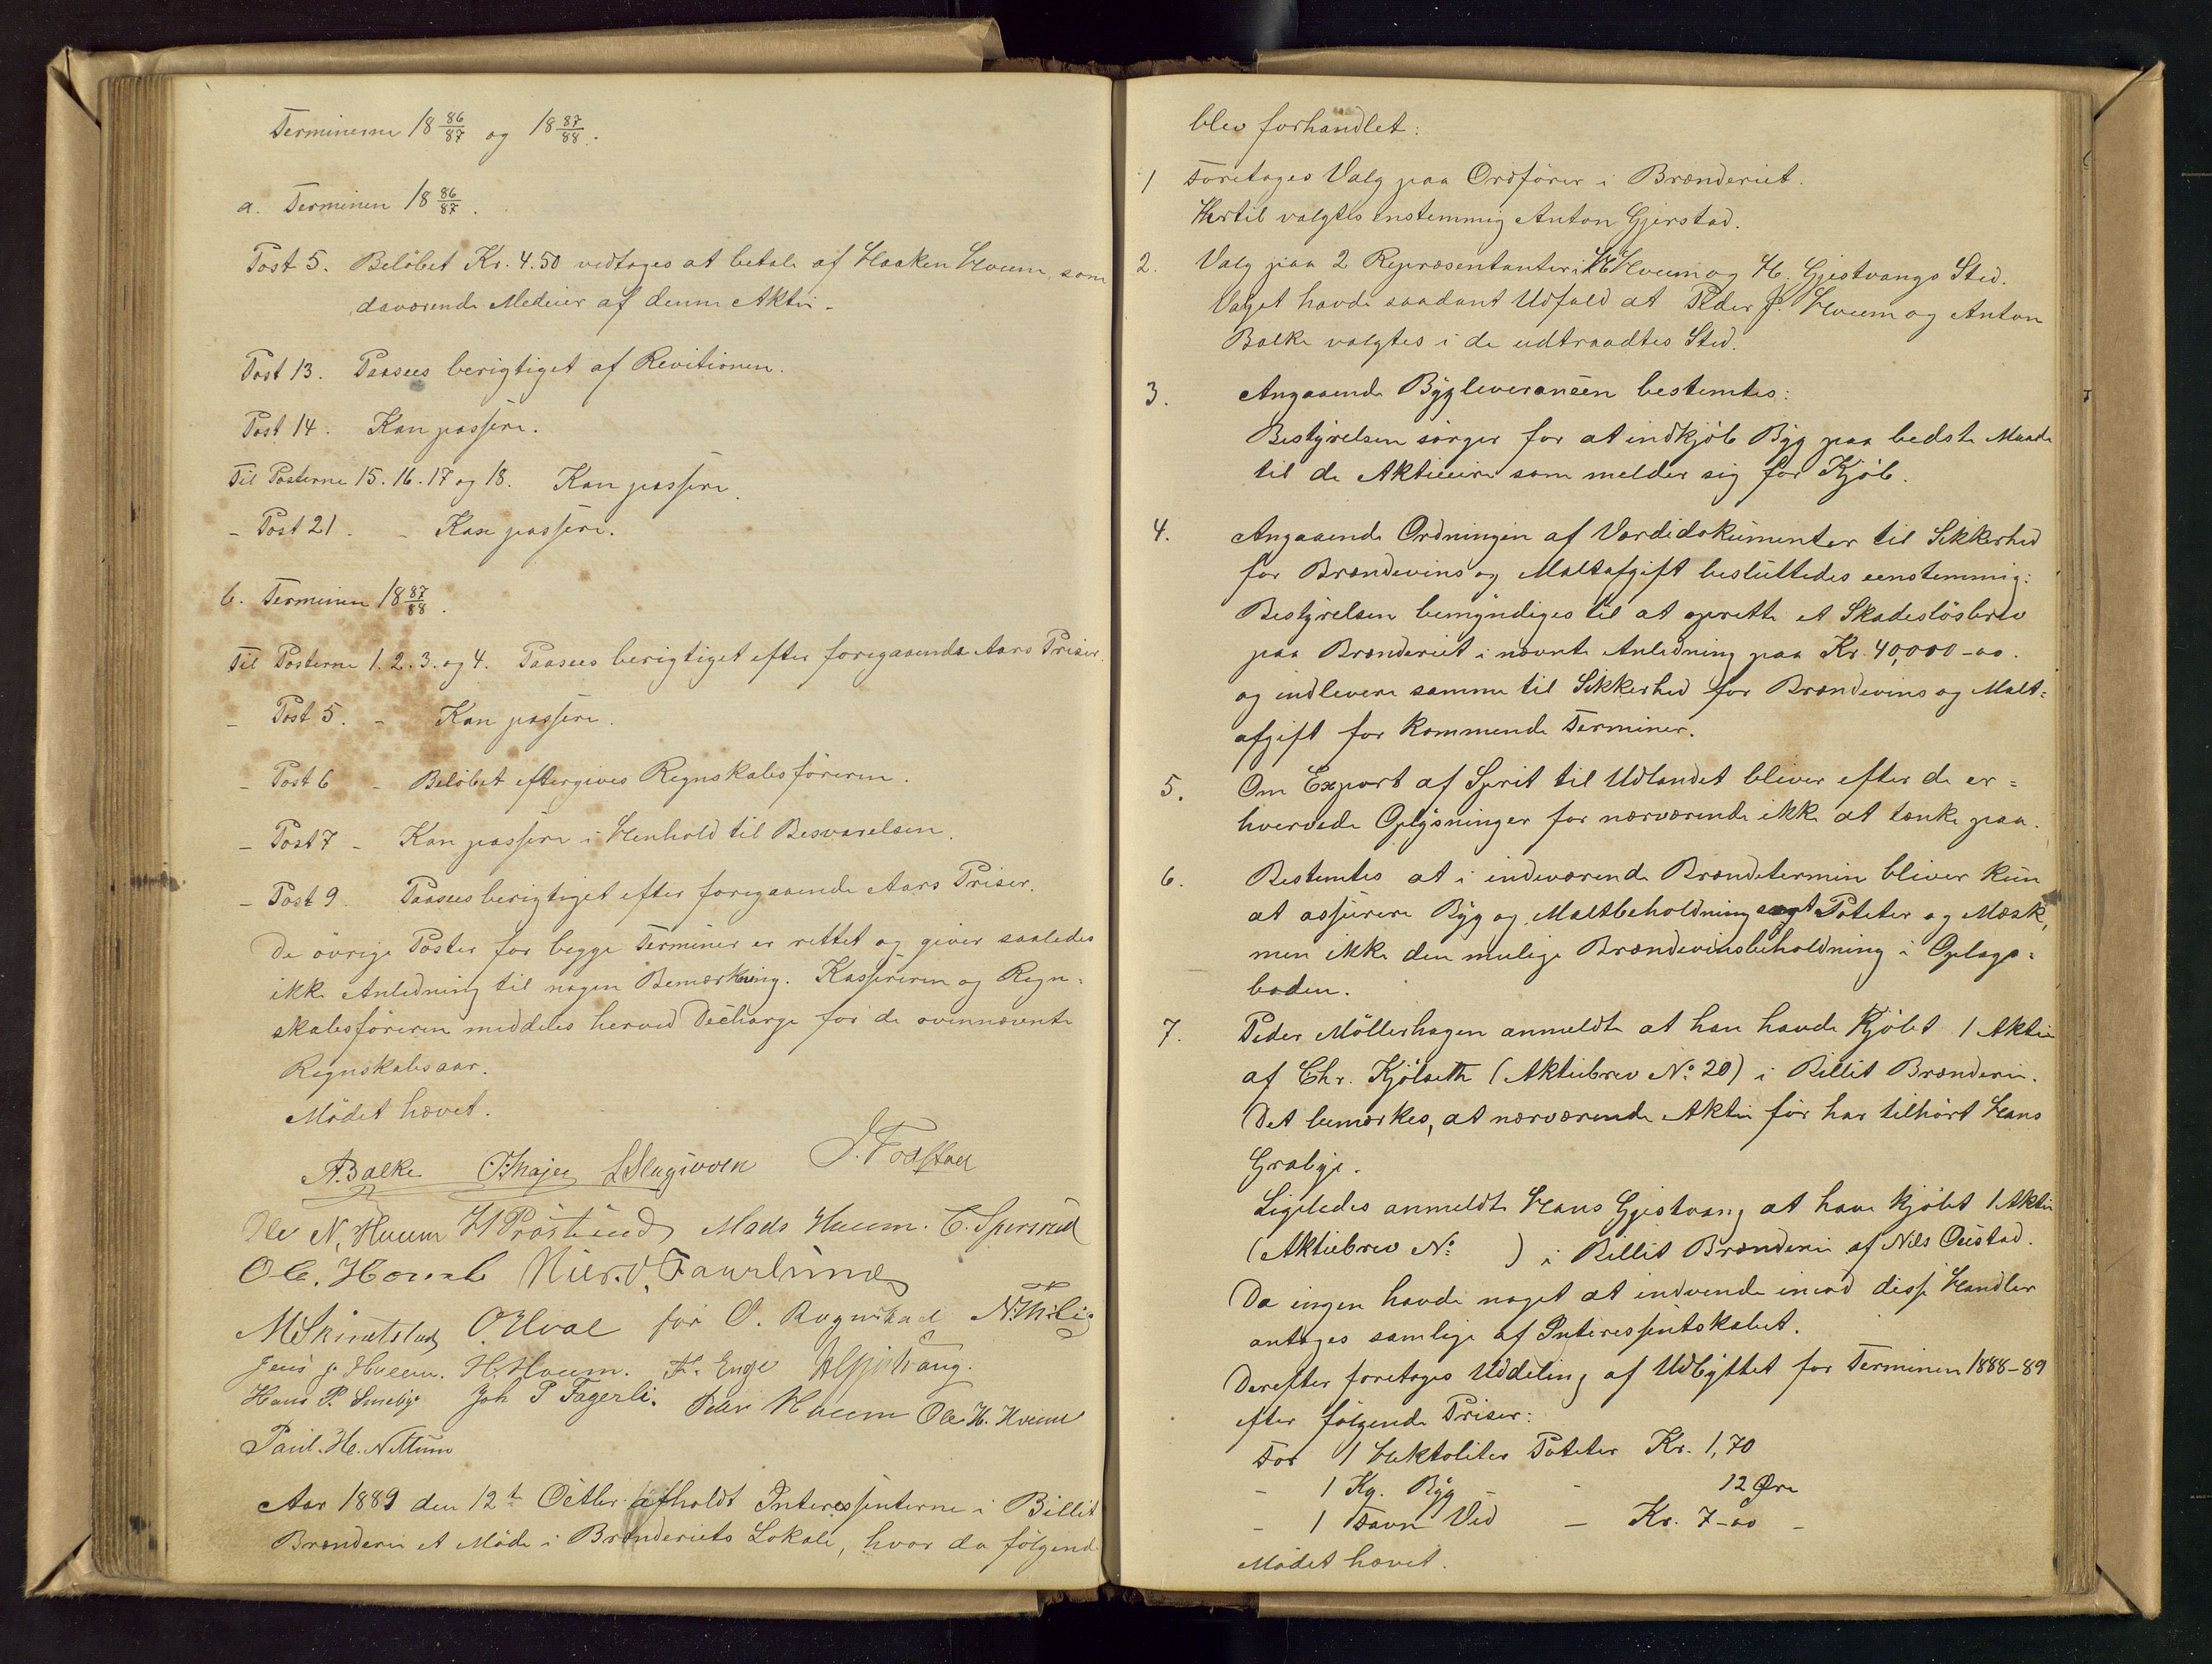 Terminerne 18 86/87 og 18 87/88.
a. Terminen 18 86/87.
Post 5. Beløbet Kr. 4.50 vedtoges at betale af Haaken Hveem, som
daværende Medeier af denne Aktie.
Post 13. Paasees berigtiget af Revitionen.
Post 14. Kan passere.
Til Posterne 15. 16. 17 og 18. Kan passere.
- Post 21. - Kan passere.
b. Terminen 18 87/88.
Til Posterne 1. 2. 3. og 4. Paasees berigtiget efter foregaaende Aars Priser.
- Post 5. - Kan passere.
- Post 6 - Beløbet eftergives Regnskabsføreren.
- Post 7 - Kan passere i Henhold til Besvarelsen.
- Post 9. Paasees berigtiget efter foregaaende Aars Priser.
De øvrige Poster for begge Terminer er rettet og giver saaledes
ikke Anledning til nogen Bemærkning. Kassereren og Regn-
skabsføreren meddeles herved Décharge for de ovennævnte
Regnskabsaar.
Mødet hævet.
A. Balke
Ole N. Hveem H Prøstiud Mads Hveem. C. Spersrud
O. Hval for O. Rognstad N. Mili
Jens J. Hveem. H. Hveem. F. Enge H Gjestvang.
Hans P. Smeby Joh P Fagerli. Peder Hveem Ole H. Hveem
Paul. H. Nettum
Aar 1889 den 12te Octbr. afholdt Interessenterne i Billit
Brænderi et Møde i Brænderiets Lokale, hvor da følgende
blev forhandlet:
1 Foretages Valg paa Ordfører i Brænderiet.
Hertil valgtes enstemmig Anton Gjerstad.
2. Valg paa 2 Repræsentanter i H Hveem og H. Gjestvangs Sted.
Valget havde saadant Udfald at Peder J. Hveem og Anton
Balke valgtes i de udtraadtes Sted.
3. Angaaende Bygleverancen bestemtes:
Bestyrelsen sørger for at indkjøb Byg paa bedste Maade
til de Aktieeire som melder sig for Kjøb.
4. Angaaende Ordningen af Værdidokumenter til Sikkerhed
for Brændevins og Maltafgift besluttedes eenstemmig:
Bestyrelsen bemyndiges til at oprette et Skadesløsbrev
paa Brænderiet i nævnte Anledning paa Kr. 40,000-00.
og indlevere samme til Sikkerhed for Brændevins og Malt-
afgift for kommende Terminer.
5. Om Export af Spirit til Udlandet bliver efter de er-
hvervede Oplysninger for nærværende ikke at tænke paa.
6. Bestemtes at i indeværende Brændetermin bliver kun
at assurere Byg og Maltbeholdning samt Poteter og Mæsk,
men ikke den mulige Brændevinsbeholdning i Oplags-
boden.
7. Peder Møllerhagen anmeldte at han havde Kjøbt 1 Aktie
af Chr. Kjølseth (Aktiebrev No. 20) i Billit Brænderi.
Det bemærkes, at nærværende Aktie før har tilhørt Hans
Græbye.
Ligeledes anmeldte Hans Gjestvang at have kjøbt 1 Aktie
(Aktiebrev No. ) i Billit Brænderi af Nils Ouistad.
Da ingen havde noget at indvende imod disse Handler
antoges samtlige af Interessentskabet.
Derefter foretoges Uddeling af Udbyttet for Terminen 1888-89
efter følgende Priser:
For 1 Hektoliter Poteter Kr. 1,70
- 1 Kg. Byg - 12 Øre
- 1 Favn Ved - Kr. 7-00 -
Mødet hævet.